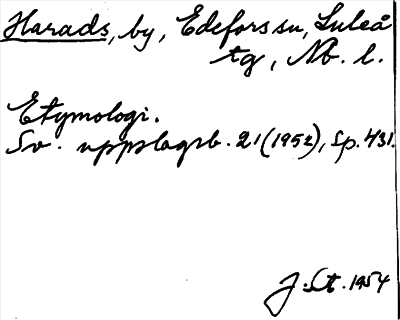 Harads, by, Edefors sn, Luleå
tg, Nb. l.
Etymologi.
Sv. uppslagsb. 21 (1952), sp. 431.
J. St. 1954